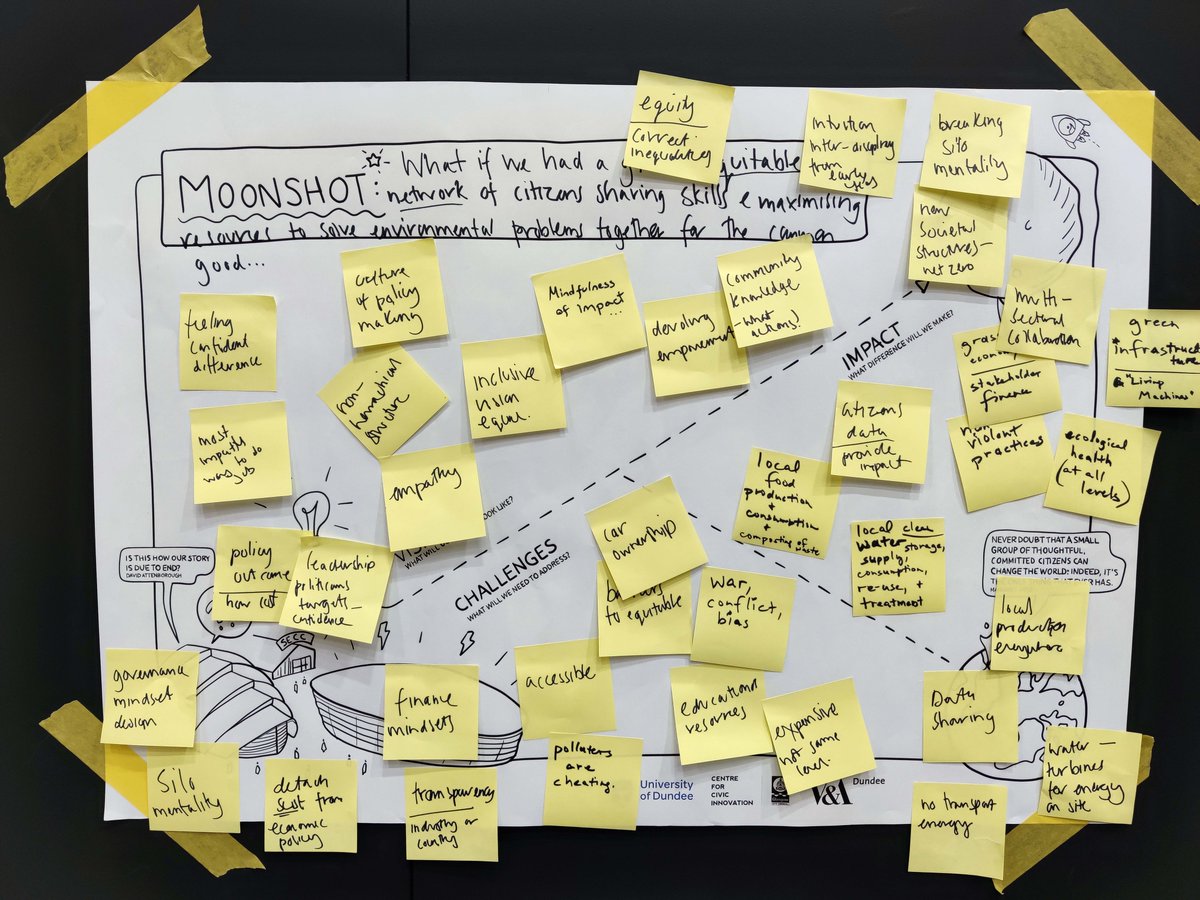 MOONSHOT:
What if we had a
network of citizens sharing skills & maximising
resources to solve environmental problems together for the common
good...
equity
correct
inequalities
intuition
from early
breaking
silo
mentality
new
societal
structures -
net zero
multi -
sectoral
collaboration
green
infrastruct
ture
"Living
Machines"
feeling
confident
difference
culture
of policy
making
Mindfulness
of impact...
devolving
empowerment
community
knowledge
- what
actions!
IMPACT
WHAT DIFFERENCE WILL WE MAKE?
stakeholder
finance
non-
hierarchical
structure
inclusive
vision
equal.
citizens
data
provide
impact
violent
practices
ecological
health
(at all
levels)
most
to do
empathy
LOOK LIKE?
VIS
WHAT WILL
local
food
production
+
consumption
+
composting of waste
local clean
water storage,
supply,
consumption,
re-use, +
treatment
car
ownership
to equitable
war,
conflict,
bias
CHALLENGES
WHAT WILL WE NEED TO ADDRESS?
policy
outcome
how cost
leadership
politicians
targets -
confidence
IS THIS HOW OUR STORY
IS DUE TO END?
DAVID ATTENBOROUGH
NEVER DOUBT THAT A SMALL
GROUP OF THOUGHTFUL,
COMMITTED CITIZENS CAN
CHANGE THE WORLD: INDEED, IT'S
local
production
everywhere
SECC
governance
mindset
design
finance
mindsets
accessible
educational
resources
expensive
not same
level.
Data
sharing
water -
turbines
for energy
on site
silo
mentality
detach
from
economic
policy
transparency
industry or
country
polluters
are
cheating.
University
of Dundee
CENTRE
FOR
CIVIC
INNOVATION
V&A
Dundee
no transport
energy